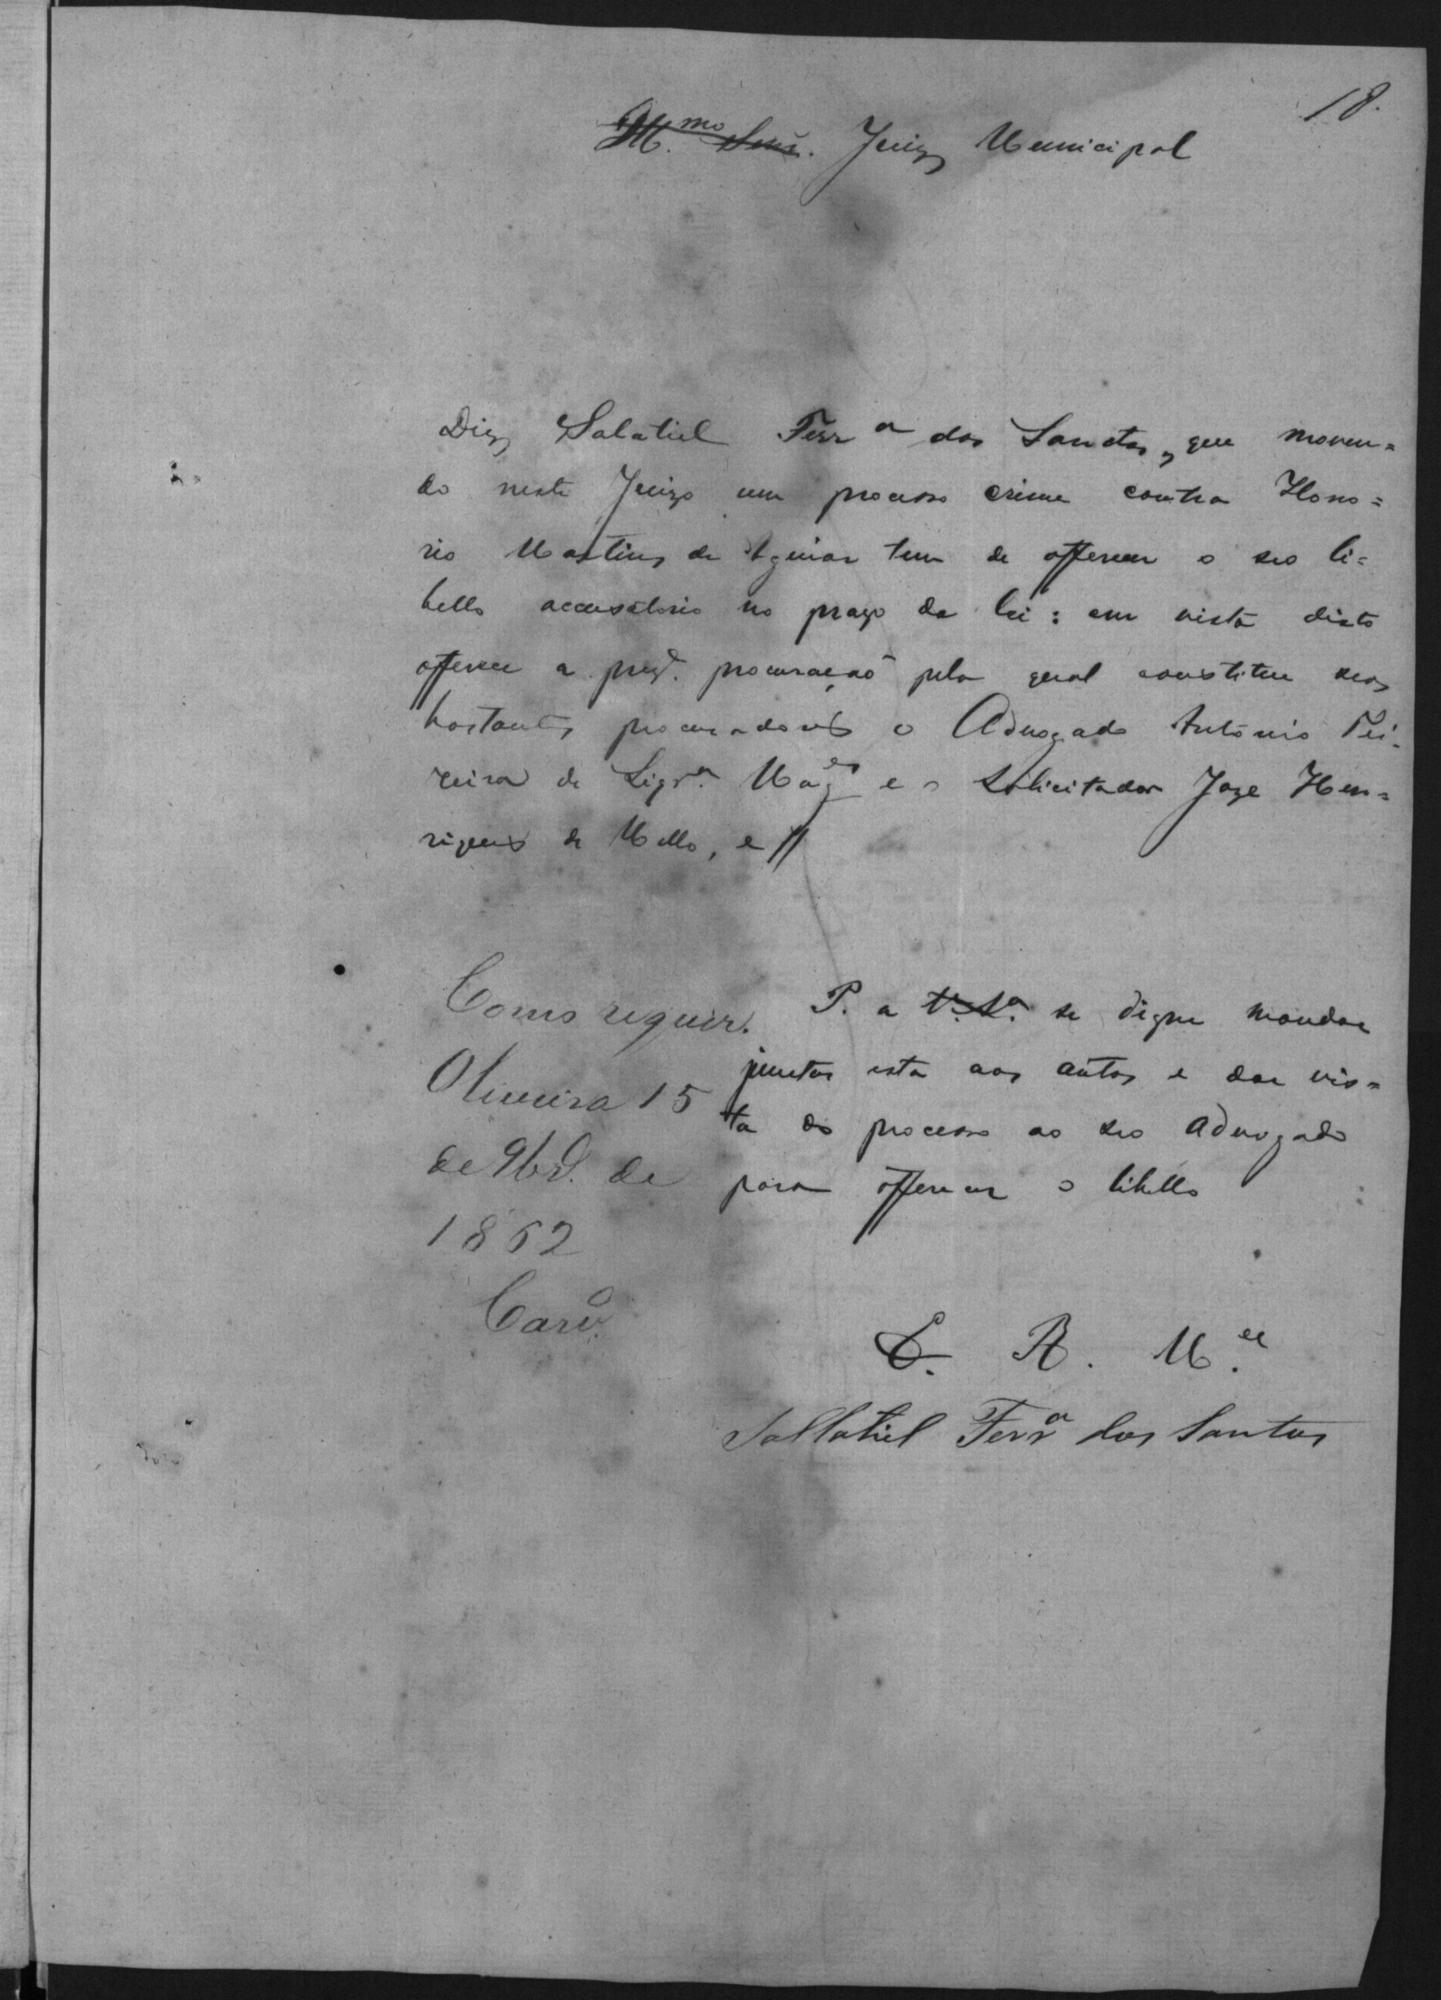 18.
Ill.mo Senr. Juiz Municipal
Diz Salatiel Ferr.a dos Sanctos, que moven=
do neste Juizo um processo crime contra Hono=
rio Martins de Aguiar tem de offerecer o seo li=
bello accusatorio no prazo da lei: em vista disto
offerece a prez.e procuração pela qual constitue seos
bastantes procuradores o Advogado Antônio Pe-
reira de Siqr.a e o Solicitador Joze Hen=
riques de Mello, e //
P. a V.S.a se digne mandar
juntar esta aos autos e dar vis=
ta do processo ao seo Advogado
para offerecer o libello
Como requer.
Oliveira 15
de 9br.o de
1862
Carv.o
E. R. M.ce
Sallatiel Ferr.a dos Santos